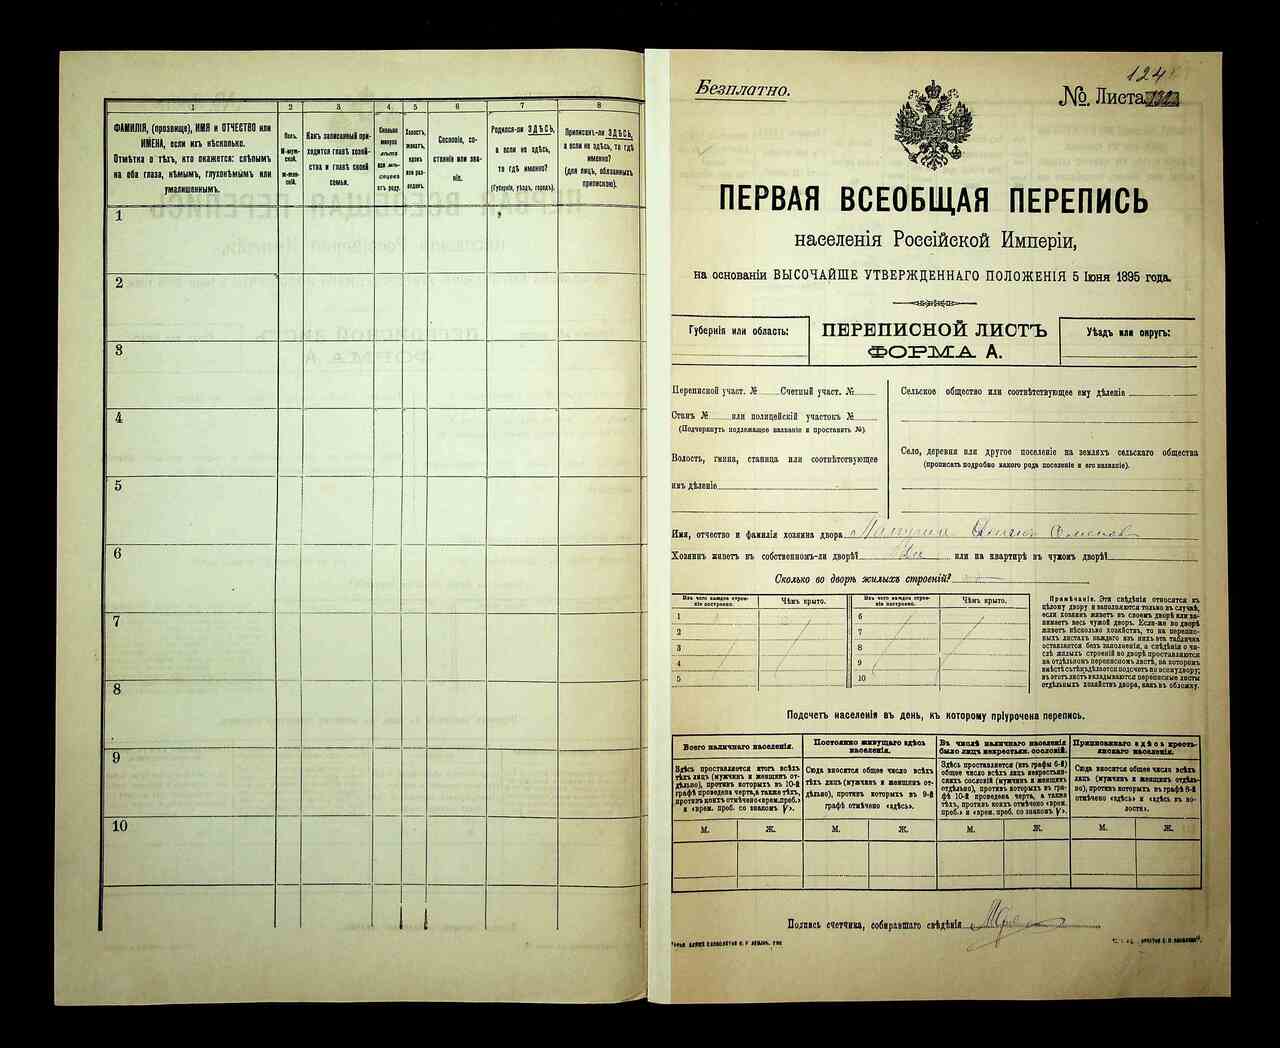 1
2
3
4
5
6
7
8
ФАМИЛІЯ, (прозвище), ИМЯ и ОТЧЕСТВО или
ИМЕНА, если ихъ нѣсколько.
Отмѣтка о тѣхъ, кто окажется: слѣпымъ
на оба глаза, нѣмымъ, глухонѣмымъ или
умалишеннымъ.
Полъ.
М-муж-
ской.
Ж-жен-
скій.
Какъ записанный при-
ходится главѣ хозяй-
ства и главѣ своей
семьи.
Сколько
минуло
лѣтъ
или мѣ-
сяцевъ
отъ роду.
Холостъ,
женатъ,
вдовъ
или раз-
веденъ.
Сословіе, со-
стояніе или зва-
ніе.
Родился-ли ЗДѢСЬ,
а если не здѣсь,
то гдѣ именно?
(Губернія, уѣздъ, городъ).
Приписанъ-ли ЗДѢСЬ,
а если не здѣсь, то гдѣ
именно?
(для лицъ, обязанныхъ
припискою).
1
2
3
4
5
6
7
8
9
10
124
Безплатно.
№ Листа
ПЕРВАЯ ВСЕОБЩАЯ ПЕРЕПИСЬ
населенія Россійской Имперіи,
на основаніи ВЫСОЧАЙШЕ УТВЕРЖДЕННАГО ПОЛОЖЕНІЯ 5 Іюня 1895 года.
Губернія или область:
ПЕРЕПИСНОЙ ЛИСТЪ
ФОРМА А.
Уѣздъ или округъ:
Переписной участ. № Счетный участ. №
Станъ № или полицейскій участокъ №
(Подчеркнуть подлежащее названіе и проставить №).
Волость, гмина, станица или соотвѣтствующее
имъ дѣленіе
Сельское общество или соотвѣтствующее ему дѣленіе
Село, деревня или другое поселеніе на земляхъ сельскаго общества
(прописать подробно какого рода поселеніе и его названіе).
Имя, отчество и фамилія хозяина двора
Хозяинъ живетъ въ собственномъ-ли дворѣ? или на квартирѣ въ чужомъ дворѣ?
Сколько во дворѣ жилыхъ строеній?
Изъ чего каждое строе-
ніе построено.
Чѣмъ крыто.
Изъ чего каждое строе-
ніе построено.
Чѣмъ крыто.
1 6
2 7
3 8
4 9
5 10
Примѣчаніе. Эти свѣдѣнія относятся къ
цѣлому двору и заполняются только въ случаѣ,
если хозяинъ живетъ въ своемъ дворѣ или за-
нимаетъ весь чужой дворъ. Если-же во дворѣ
живетъ нѣсколько хозяйствъ, то на перепис-
ныхъ листахъ каждаго изъ нихъ эта табличка
оставляется безъ заполненія, а свѣдѣнія о чи-
слѣ жилыхъ строеній во дворѣ проставляются
на отдѣльномъ переписномъ листѣ, на которомъ
вмѣстѣ съ тѣмъ дѣлается подсчетъ по всему двору;
въ этотъ листъ вкладываются переписные листы
отдѣльныхъ хозяйствъ двора, какъ въ обложку.
Подсчетъ населенія въ день, къ которому пріурочена перепись.
Всего наличнаго населенія.
Постоянно живущаго здѣсь
населенія.
Въ числѣ наличнаго населенія
было лицъ некрестьян. сословій.
Приписаннаго здѣсь кресть-
янскаго населенія.
Здѣсь проставляется итогъ всѣхъ
тѣхъ лицъ (мужчинъ и женщинъ от-
дѣльно), противъ которыхъ въ 10-й
графѣ проведена черта, а также тѣхъ,
противъ коихъ отмѣчено «врем. преб.»
и «врем. преб. со знакомъ V».
Сюда вносится общее число всѣхъ
тѣхъ лицъ (мужчинъ и женщинъ от-
дѣльно), противъ которыхъ въ 9-й
графѣ отмѣчено «здѣсь».
Здѣсь проставляется (изъ графы 6-й)
общее число всѣхъ лицъ некрестьян-
скихъ сословій (мужчинъ и женщинъ
отдѣльно), противъ которыхъ въ гра-
фѣ 10-й проведена черта, а также
тѣхъ, противъ коихъ отмѣчено «врем.
преб.» и «врем. преб. со знакомъ V».
Сюда вносится общее число всѣхъ
лицъ (мужчинъ и женщинъ отдѣль-
но), противъ которыхъ въ графѣ 8-й
отмѣчено «здѣсь» и «здѣсь въ во-
лости».
М. Ж. М. Ж. М. Ж. М. Ж.
Подпись счетчика, собиравшаго свѣдѣнія